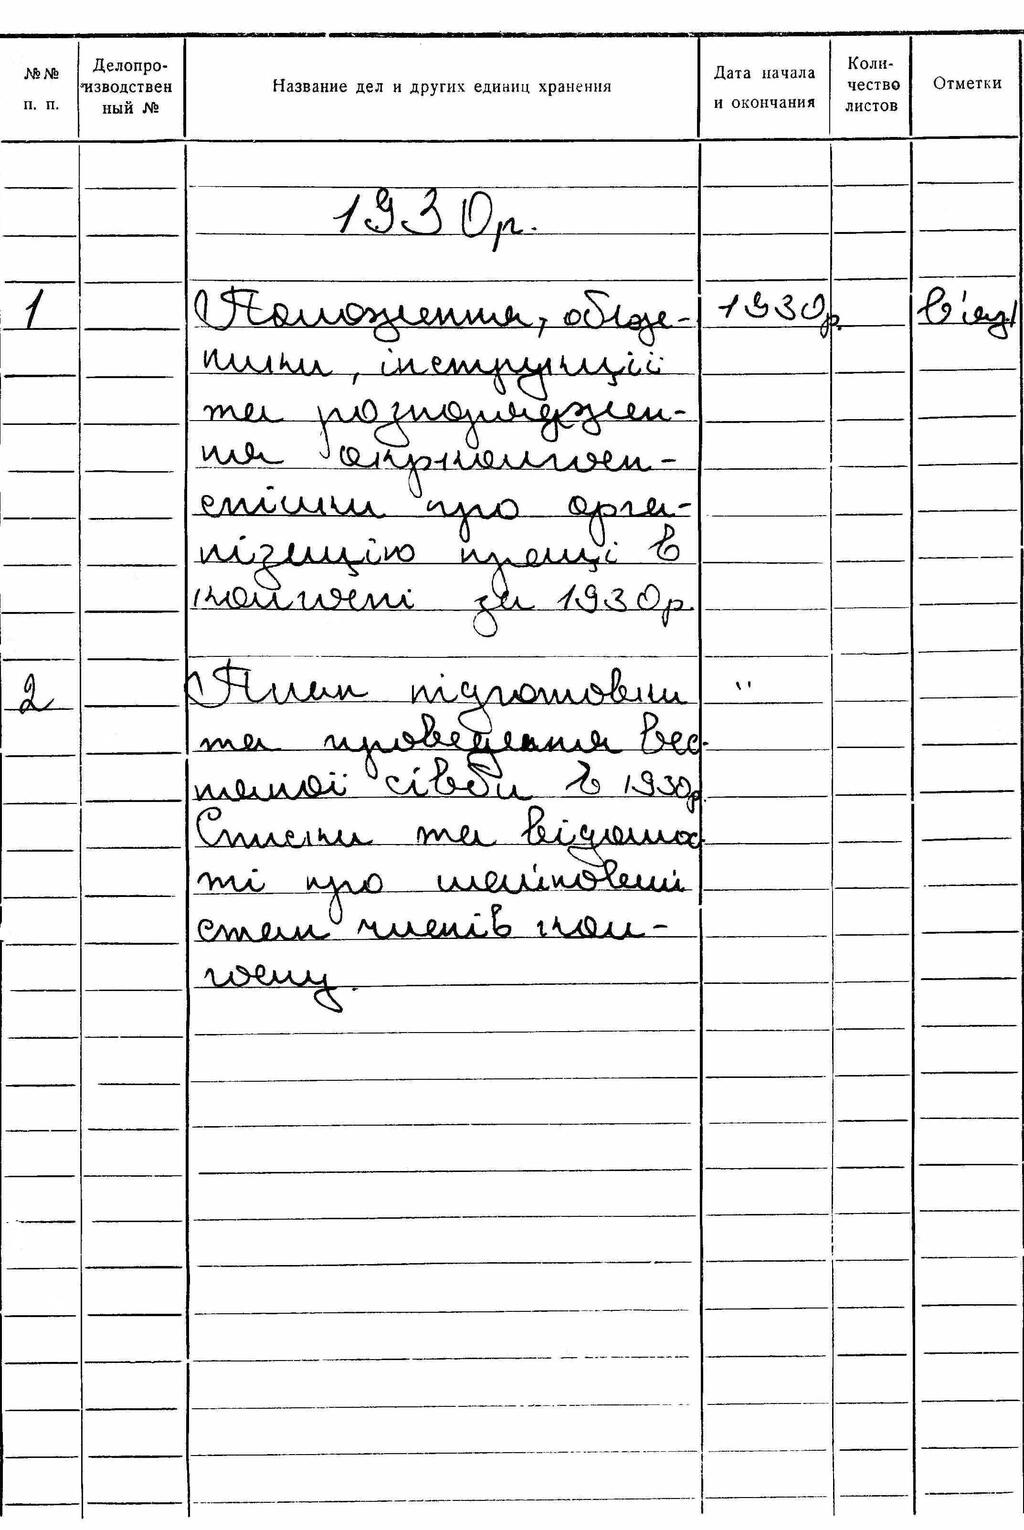 №№ п. п.
Делопро-
изводствен
ный №
Название дел и других единиц хранения
Дата начала
и окончания
Коли-
чество
листов
Отметки
1930р.
1 Положення, обіж- 1930р.
ники, інструкції
та розпоряджен-
ня окрколгосп-
спілки про орга-
нізацію праці в
колгоспі за 1930р.
2 План підготовки "
та проведення вес-
няної сівби в 1930р.
Списки та відомос-
ті про майновий
стан членів кол-
госпу.